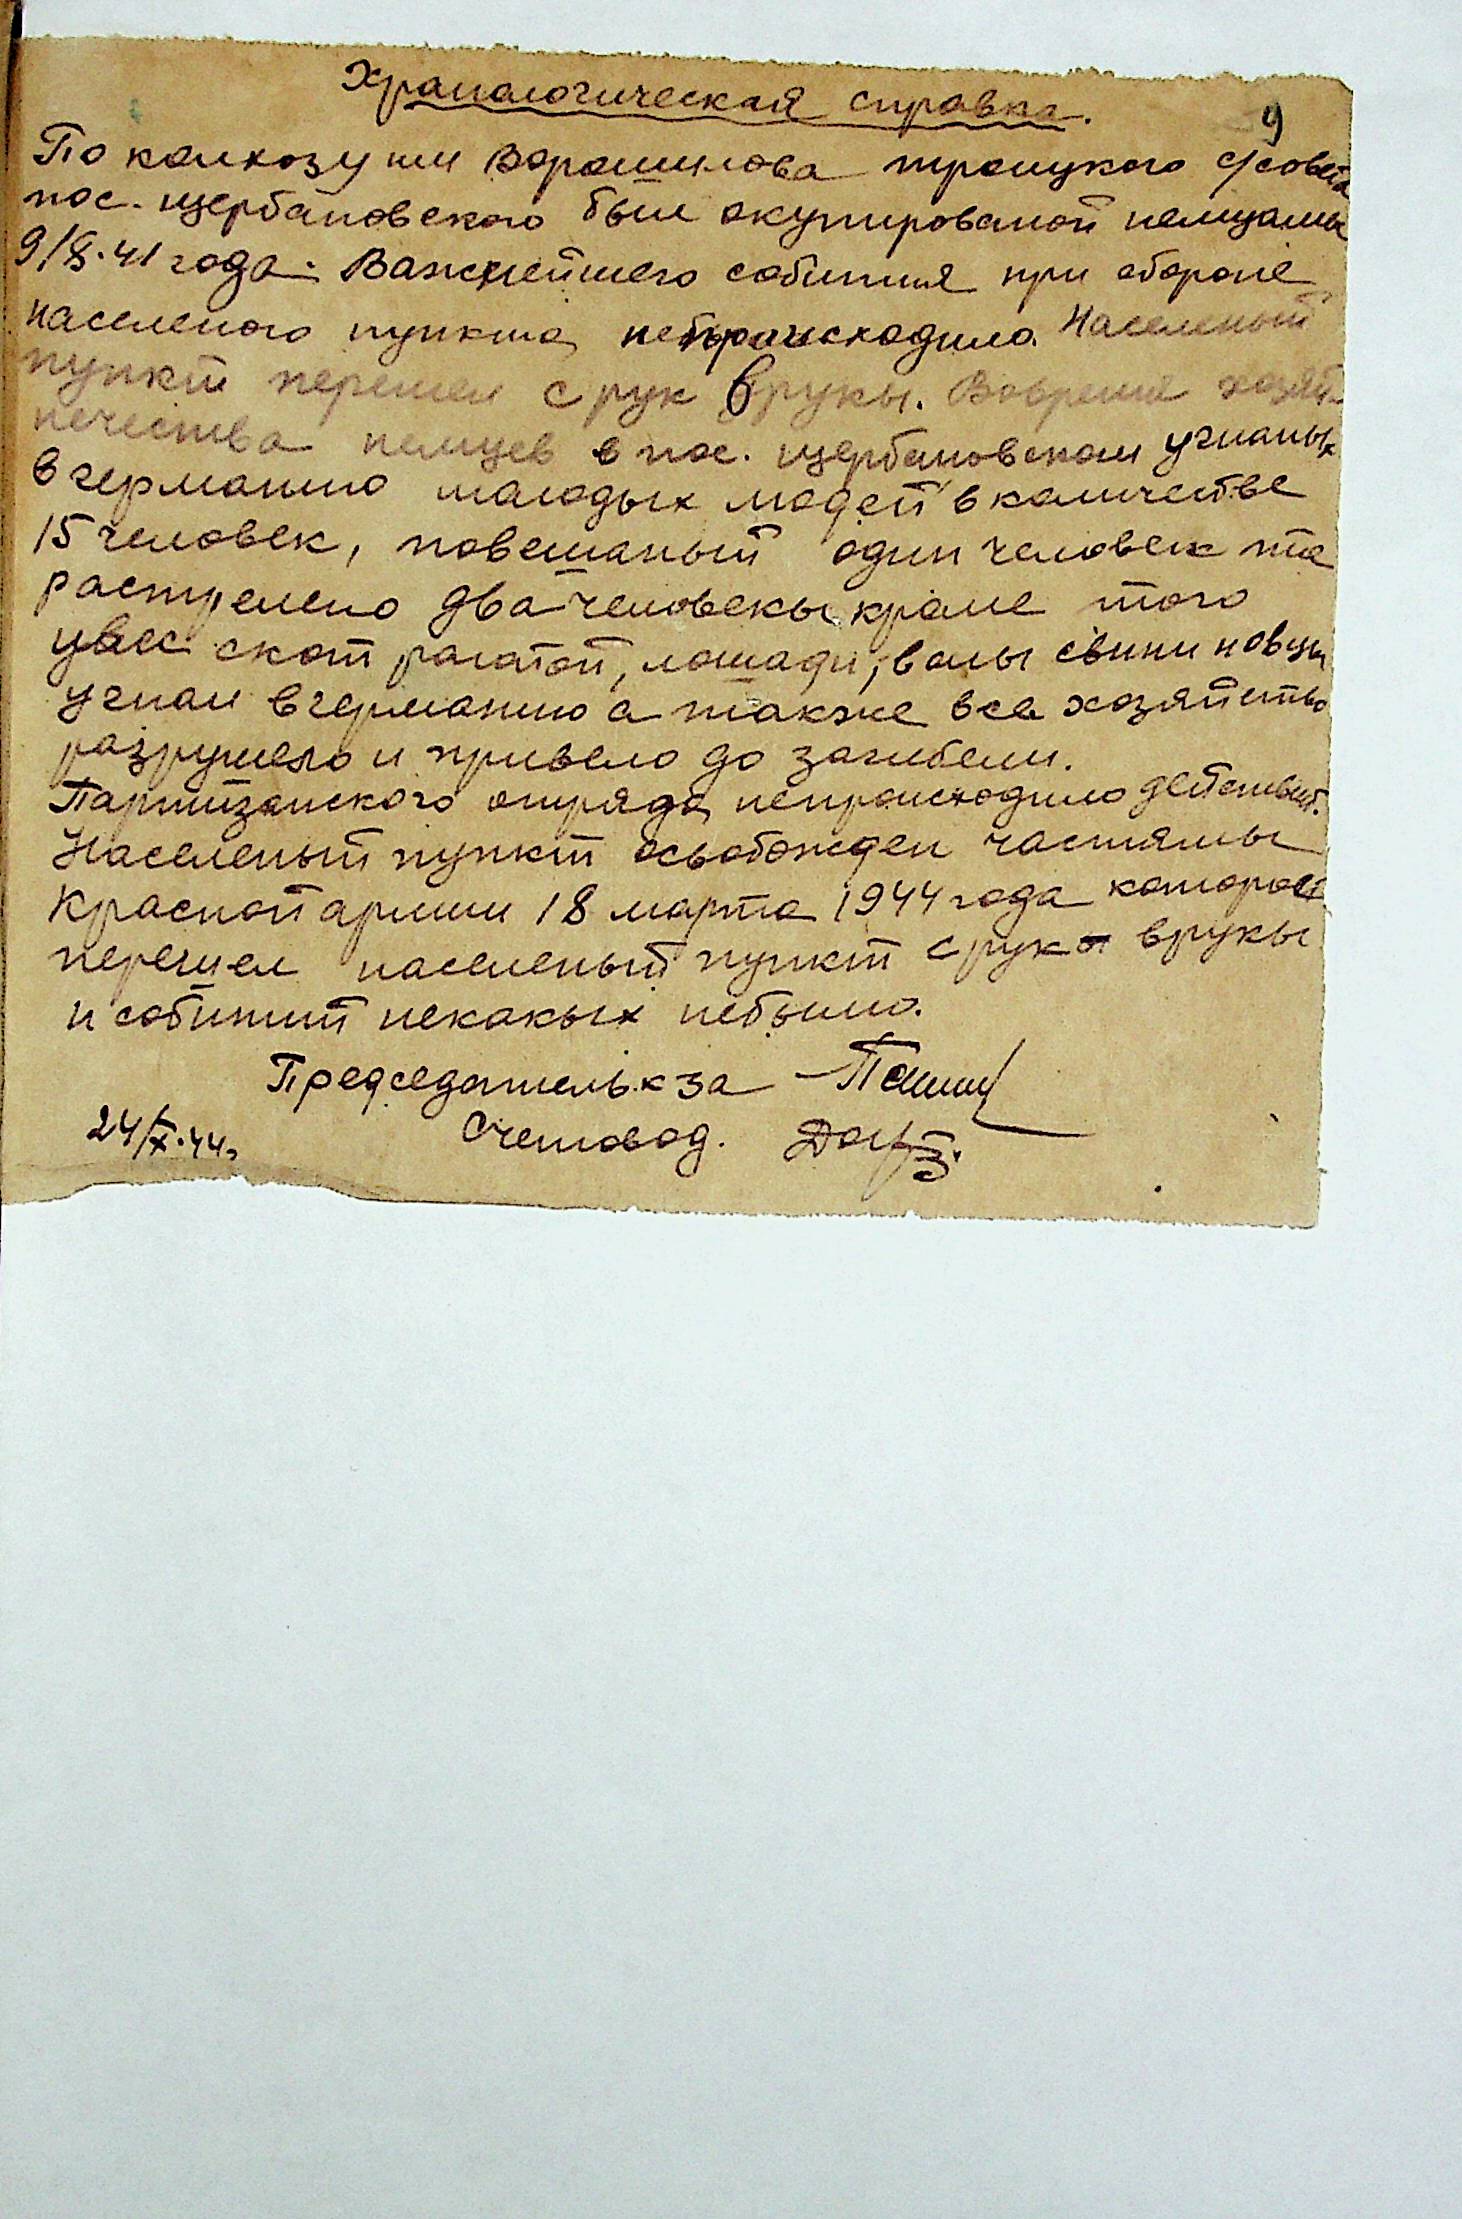 Хранологическая справка.
9
По колхозу им Ворошилова троицкого с/совета
пос. щербановского был окупированой немцамы
9/X.41 года. Важнейшего события при обороне
населеного пункта непроисходило. Населеный
пункт перешел с рук в рукы. Вовремя хозяй-
нечества немцев в пос. щербановском угнаных
в германию молодых людей в количестве
15 человек, повешаный один человек та
растрелено два человекы кроме того
увес скот рогатой, лошади, волы свини и овцы
угнал в германию а также все хозяйство
разрушело и привело до загибели.
Партизанского отряда непроисходило действий.
Населеный пункт освобожден частямы
Красной армии 18 марта 1944 года которое
перешел населеный пункт с рук в рукы
и собитий некакых небыло.
Председатель к-за
Счетовод.
24/X.44г